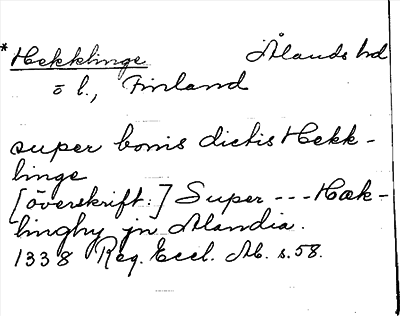 *Hekklinge Ålands hd
ö l., Finland
super bonis dictis Hekk-
linge
[överskrift:] Super --- Hæk-
lingby jn Alandia.
1338 Reg. Eccl. Ab. s. 58.